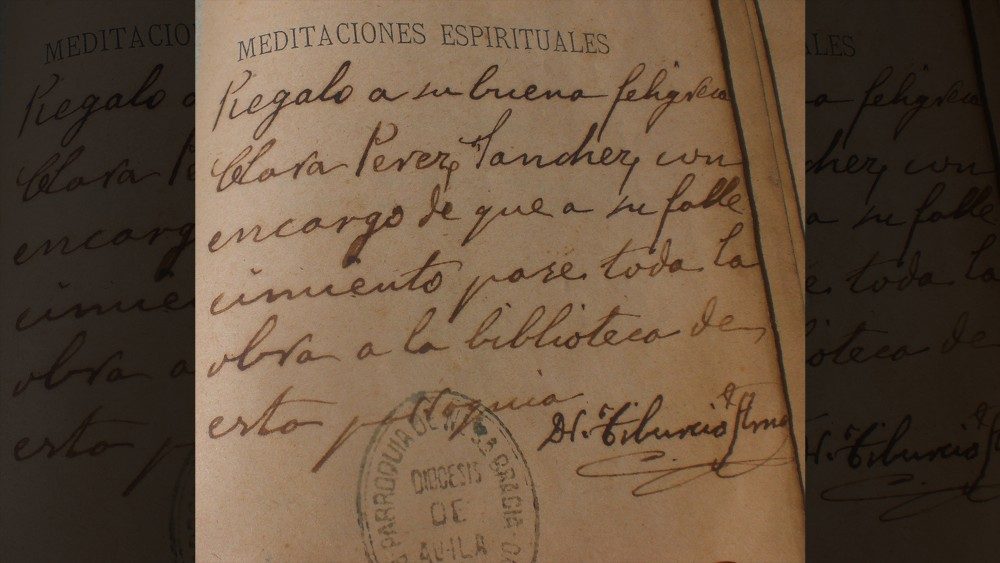 MEDITACIONES ESPIRITUALES
Regalo a su buena feligresa
Clara Perez Sanchez, con
encargo de que a su falle
cimiento pase toda la
obra a la biblioteca de
esta parroquia
Dr. Tiburcio
PARROQUIA DE GRACIA
DIOCESIS
DE
AVILA